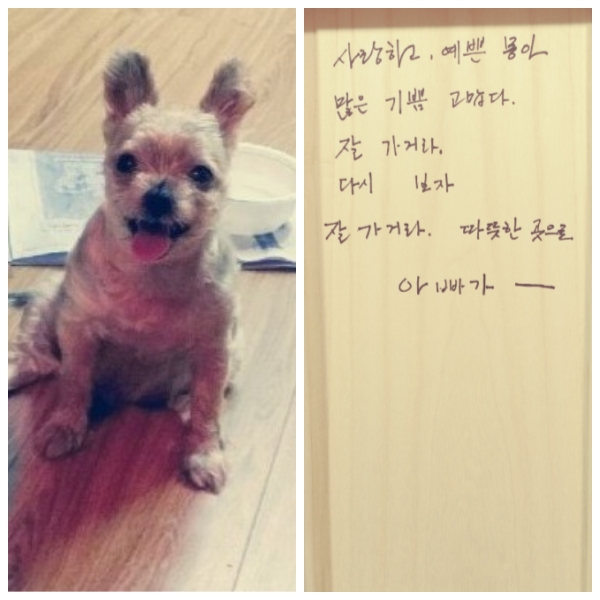 사랑하고, 예쁜 몽아
많은 기쁨 고맙다.
잘 가거라.
다시 보자
잘 가거라. 따뜻한 곳으로
아빠가 —